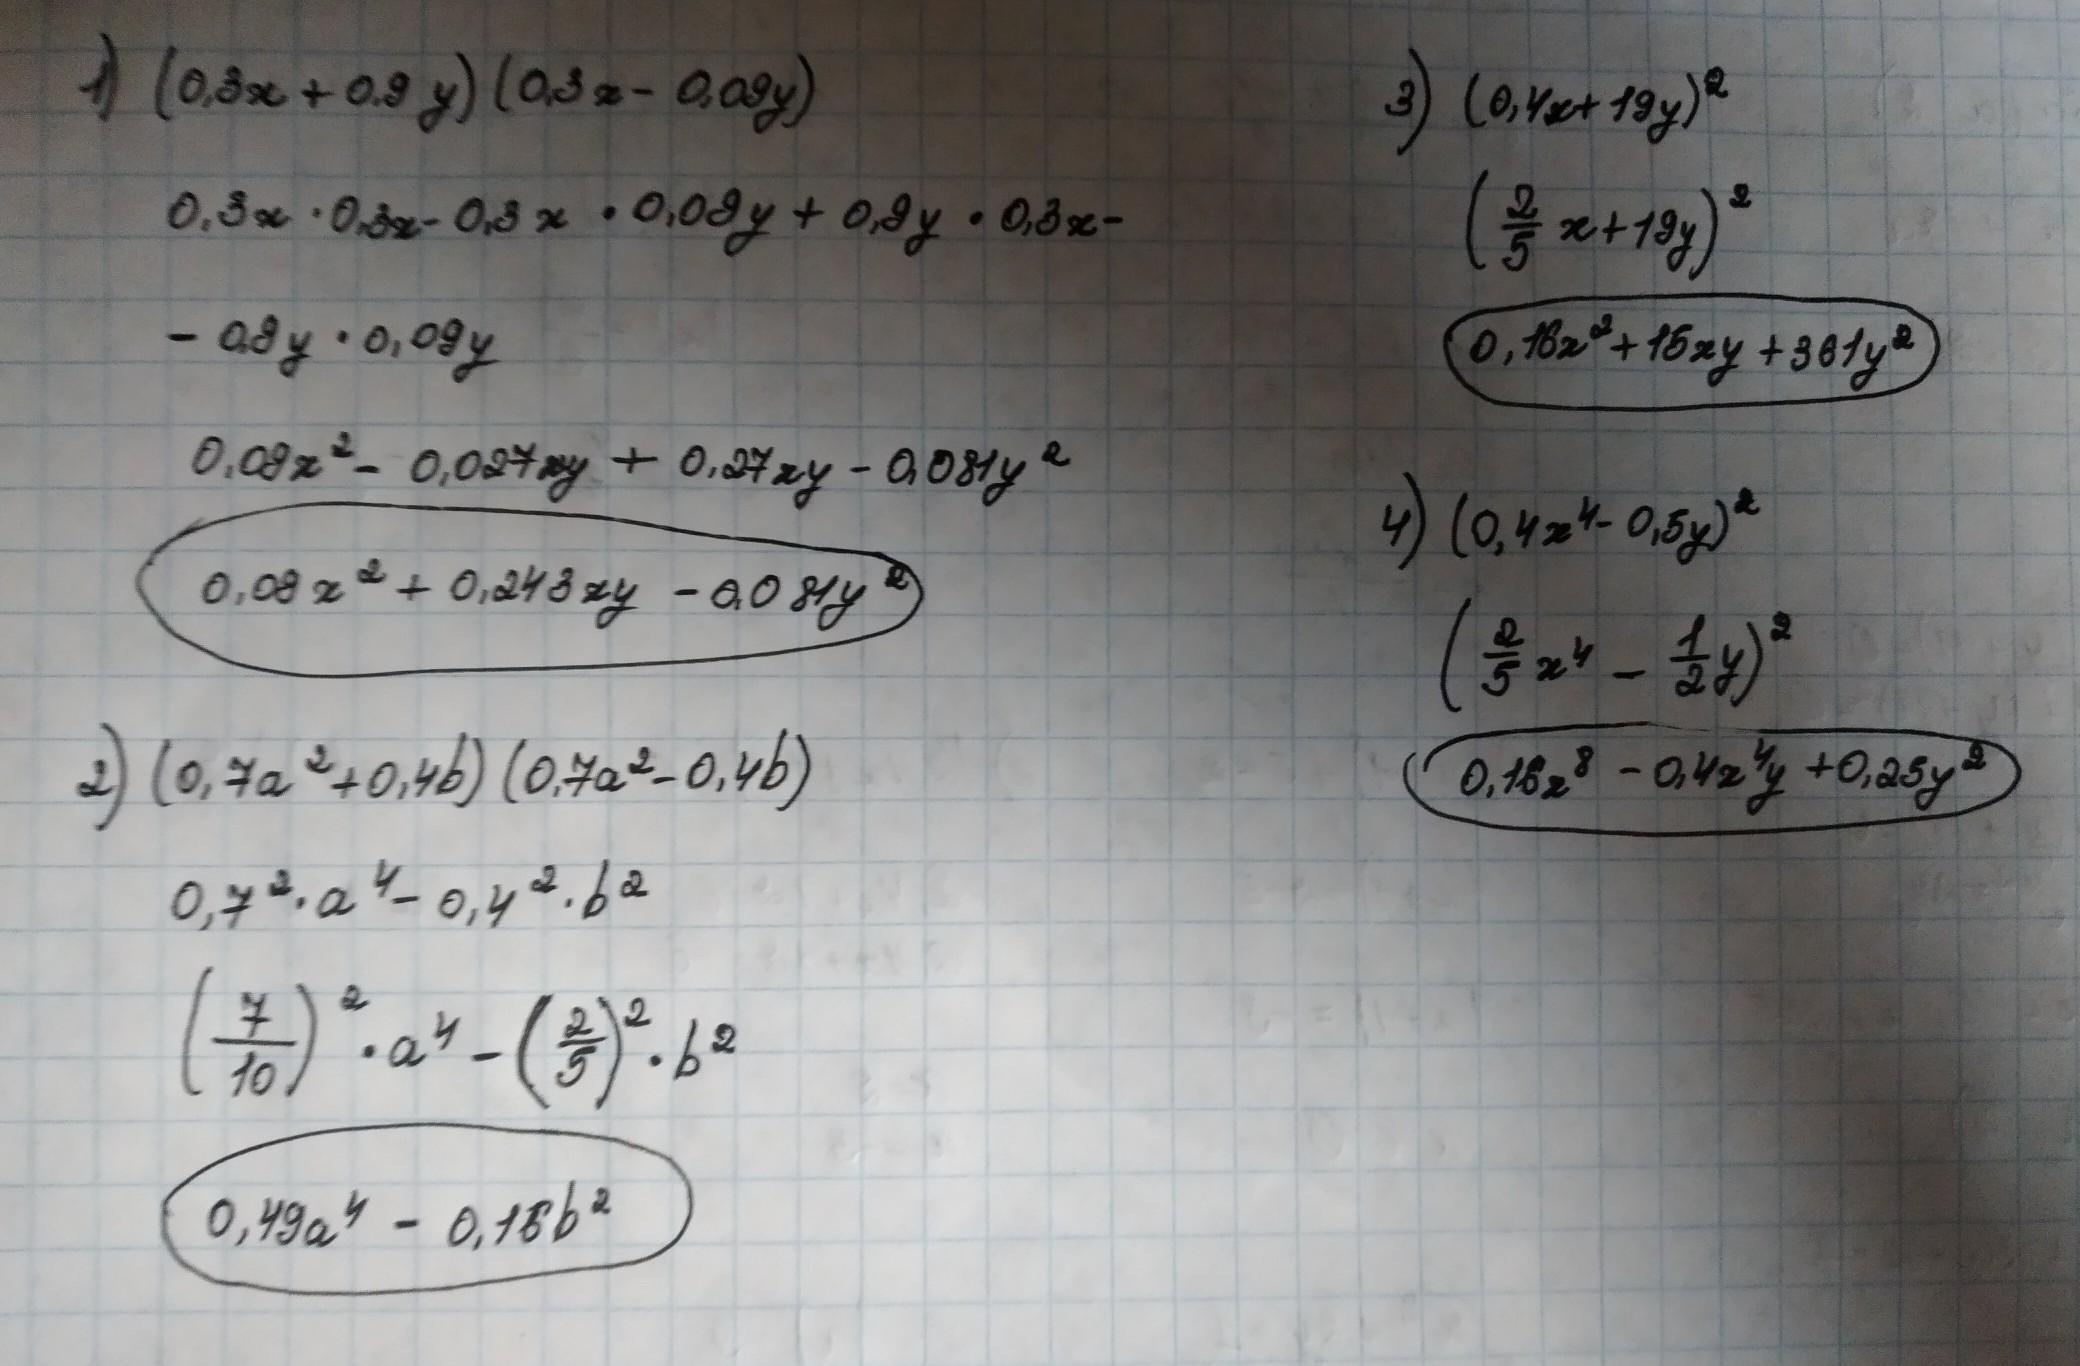 1) (0,3x + 0.9y) (0,3x - 0,09y)
0,3x · 0,3x - 0,3x · 0,09y + 0,9y · 0,3x -
- 0,9y · 0,09y
0,09x² - 0,027xy + 0,27xy - 0,081y²
0,09x² + 0,243xy - 0,081y²
2) (0,7a² + 0,4b) (0,7a² - 0,4b)
0,7² · a⁴ - 0,4² · b²
(7/10)² · a⁴ - (2/5)² · b²
0,49a⁴ - 0,16b²
3) (0,4x + 19y)²
(2/5 x + 19y)²
0,16x² + 15xy + 361y²
4) (0,4x⁴ - 0,5y)²
(2/5 x⁴ - 1/2 y)²
0,16x⁸ - 0,4x⁴y + 0,25y²